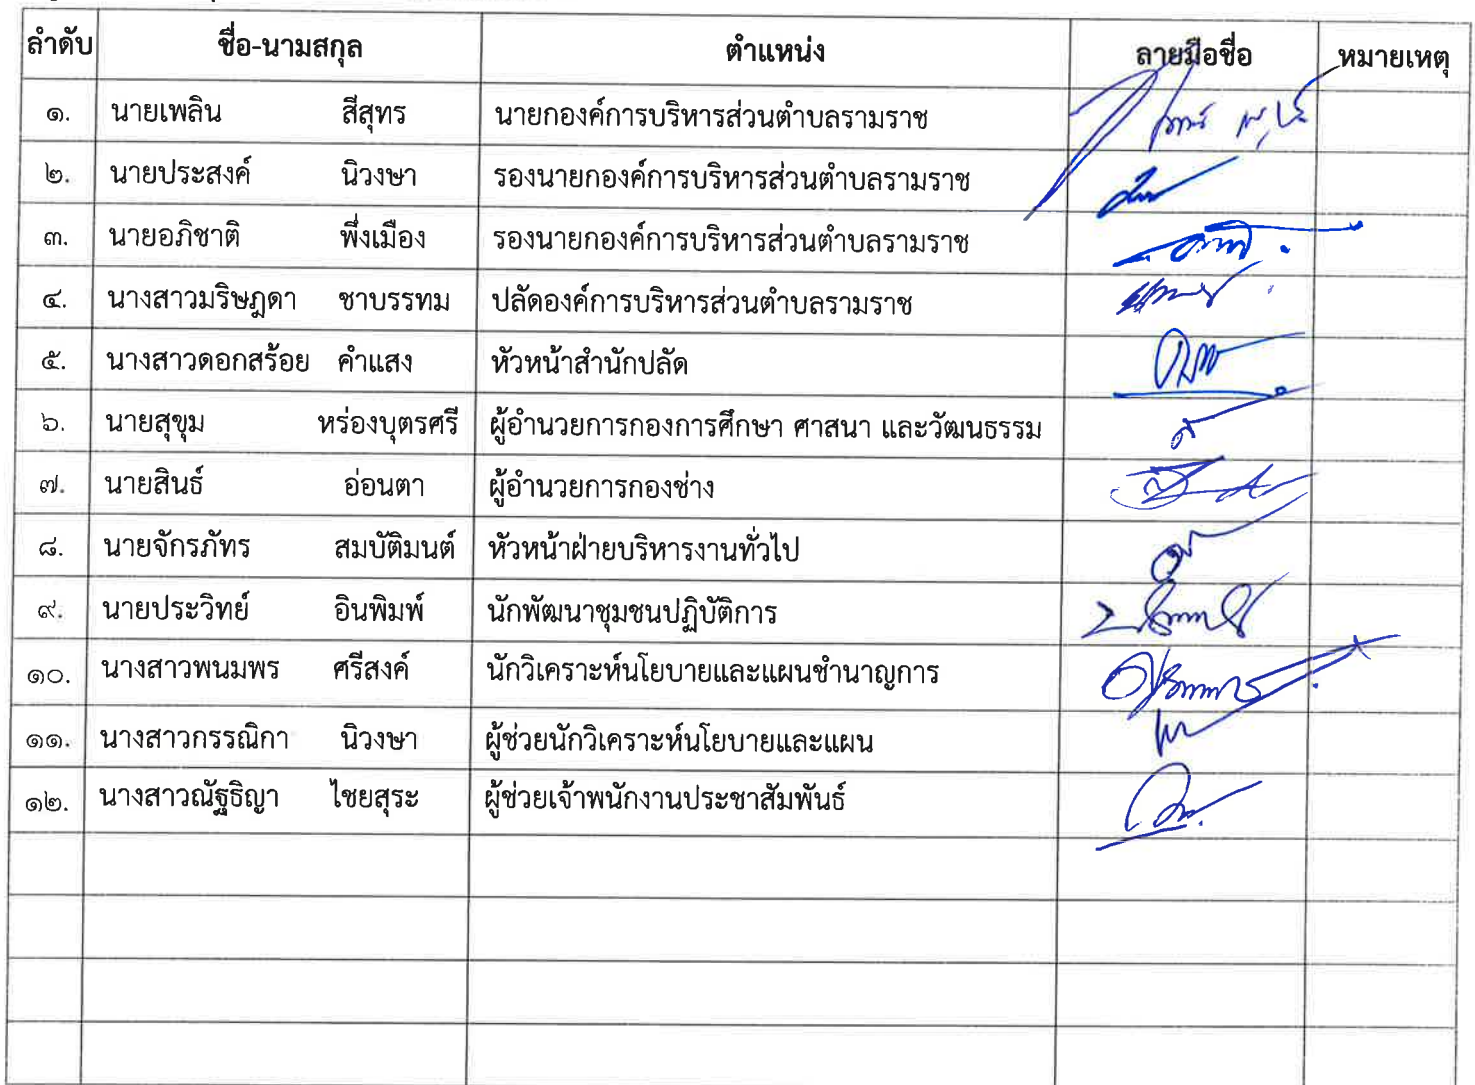 ลำดับ ชื่อ-นามสกุล ตำแหน่ง ลายมือชื่อ หมายเหตุ
๑. นายเพลิน สีสุทร นายกองค์การบริหารส่วนตำบลรามราช
๒. นายประสงค์ นิวงษา รองนายกองค์การบริหารส่วนตำบลรามราช
๓. นายอภิชาติ พึ่งเมือง รองนายกองค์การบริหารส่วนตำบลรามราช
๔. นางสาวมริษฎดา ชาบรรทม ปลัดองค์การบริหารส่วนตำบลรามราช
๕. นางสาวดอกสร้อย คำแสง หัวหน้าสำนักปลัด
๖. นายสุขุม หร่องบุตรศรี ผู้อำนวยการกองการศึกษา ศาสนา และวัฒนธรรม
๗. นายสินธ์ อ่อนตา ผู้อำนวยการกองช่าง
๘. นายจักรภัทร สมบัติมนต์ หัวหน้าฝ่ายบริหารงานทั่วไป
๙. นายประวิทย์ อินพิมพ์ นักพัฒนาชุมชนปฏิบัติการ
๑๐. นางสาวพนมพร ศรีสงค์ นักวิเคราะห์นโยบายและแผนชำนาญการ
๑๑. นางสาวกรรณิกา นิวงษา ผู้ช่วยนักวิเคราะห์นโยบายและแผน
๑๒. นางสาวณัฐธิญา ไชยสุระ ผู้ช่วยเจ้าพนักงานประชาสัมพันธ์